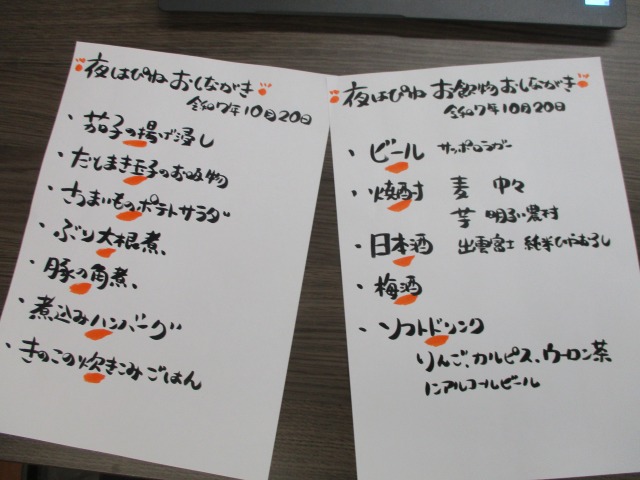 夜はぴね おしながき
令和7年10月20日
・茄子の揚げ浸し
・だしまき玉子のお吸物
・さつまいものポテトサラダ
・ぶり大根煮、
・豚の角煮、
・煮込みハンバーグ
・きのこの炊きこみごはん
夜はぴね お飲物 おしながき
令和7年10月20日
・ビール サッポロラガー
・焼酎 麦 中々
芋 明るい農村
・日本酒 出雲富士 純米ひやおろし
・梅酒
・ソフトドリンク
りんご、カルピス、ウーロン茶
ノンアルコールビール